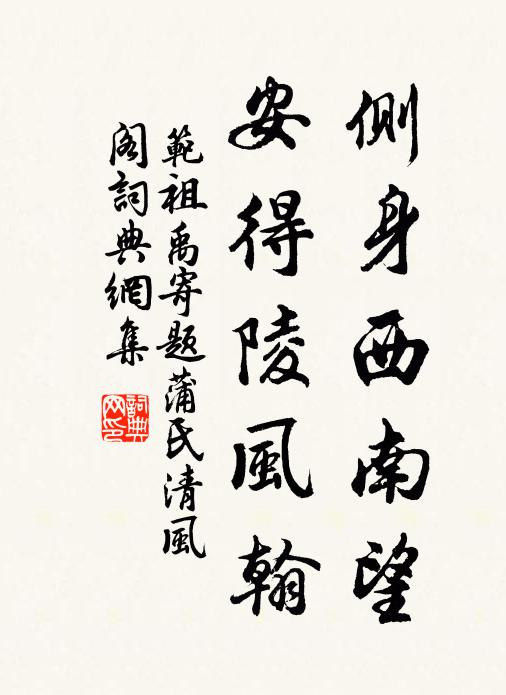 側身西南望
安得陵風翰
範祖禹寄题蒲氏清風
閣詞典網集
詞典网印